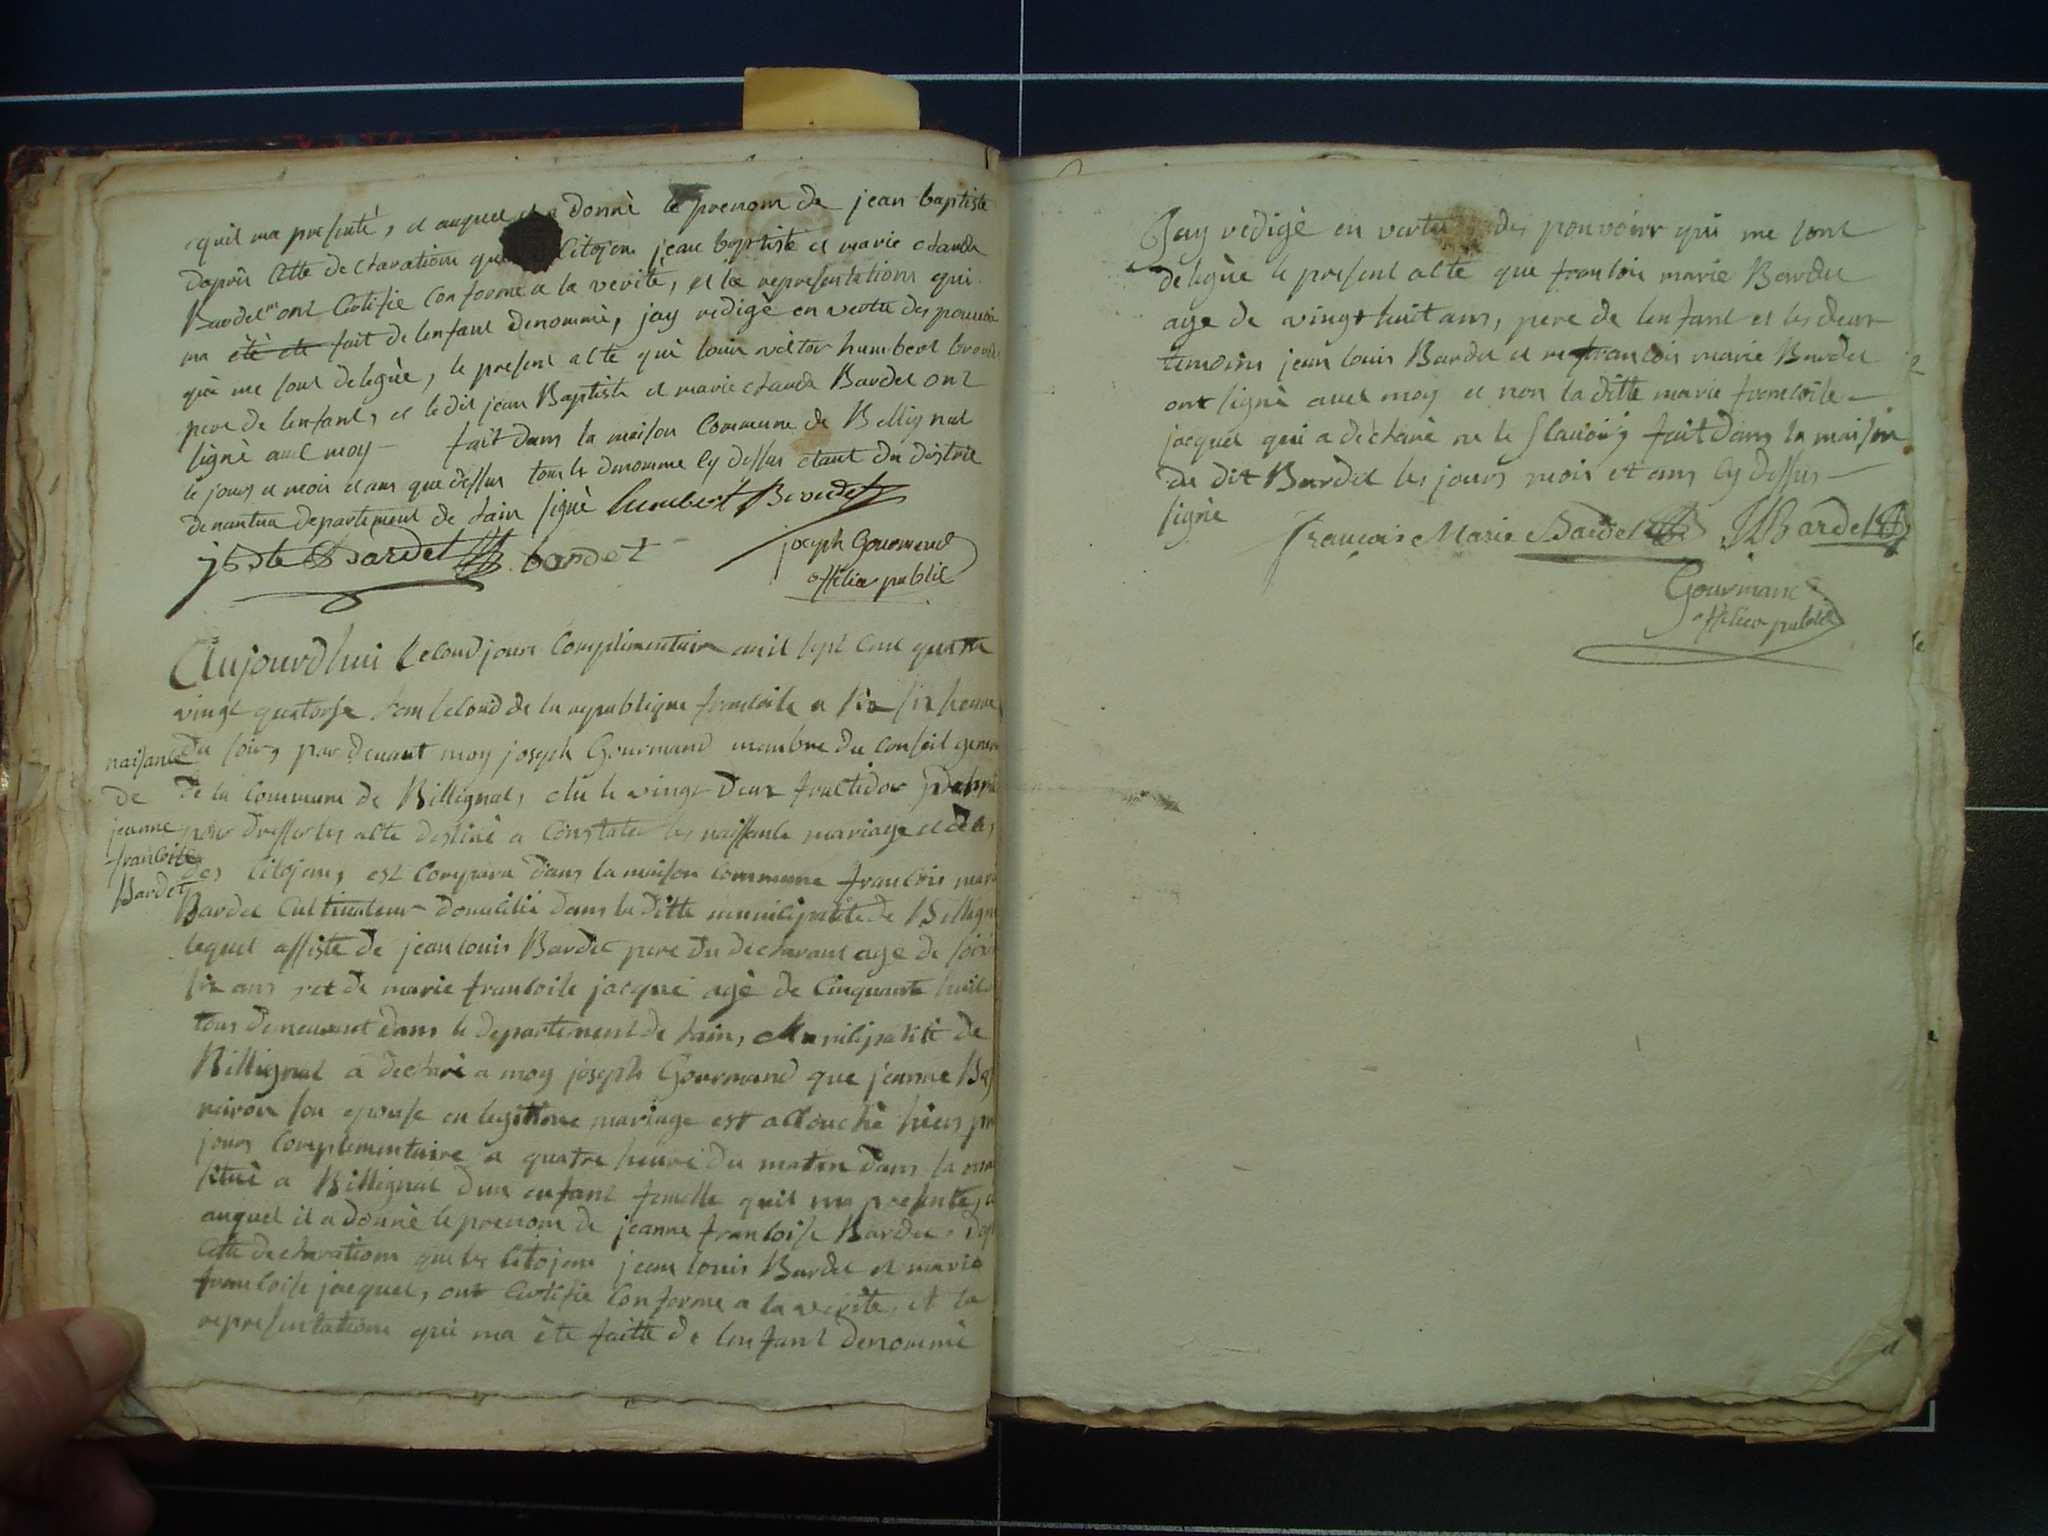 quil ma presenté, et auquel il a donnè le prenom de jean baptiste
daprès cette declaration que citojen jean baptiste et marie clauda
Bardet ont certifie conforme a la verite, et la representations qui
ma été ete fait de lenfant denommè, jay redigè en vertu des pouvoir
qui me sont deleguè, le present acte que louis victor humbert
pere de lenfant, et le dit jean Baptiste et marie clauda Bardet ont
signè avec moy — fait dans la maison commune de Bellignat
le jours et mois et ans que dessus tous le denomme cy dessus etant du district
de nantua departement de lain signè humbert
jbste Bardet bardet
joseph Gourmand
officier public
Aujourdhui second jours complimentaire mil sept cent quatre
vingt quatorse lan second de la republique francoise a six heure
du soir, par devant moy joseph Gourmand membre du conseil gener
de la commune de Billignat, elu le vingt deux fructidor
pour dresser les acte destinè a constater les naissance mariage et deces
des citojens, est comparu dans la maison commune francois mari
Bardet cultivateur domicilié dans la ditte municipalité de Billign
lequel assisté de jean louis Bardet pere du declarant age de soix
six ans et de marie francoise jacque agè de cinquante huit
tous demeurent dans le departement de lain, municipalité de
Billignat a declaré a moy joseph Gourmand que jeanne
son epouse en legitime mariage est accouchè hiers pr
jours complementaire a quatre heure du matin dans sa mai
situè a Billignat dun enfant femelle quil ma presenté, et
auquel il a donnè le prenom de jeanne francoise Bardet. dap
cette declarations que les citojens jean louis Bardet et marie
francoise jacquet, ont certifie conforme a la verité, et la
representations qui ma ète faitte de lenfant denommè
naisance
de
jeanne
francoise
Bardet
Jay redigè en vertu des pouvoirs qui me sont
deleguè le present acte que francois marie Bardet
age de vingt huit ans, pere de lenfant et les deux
temoins jean louis Bardet et francois marie Bardet
ont signè avec moy et non la ditte marie francoise
jacquet qui a declaré ne le scavoirs fait dans la maison
du dit Bardet les jours mois et ans cy dessus —
signè
francois Marie Bardet JL Bardet
Gourmand
officier public